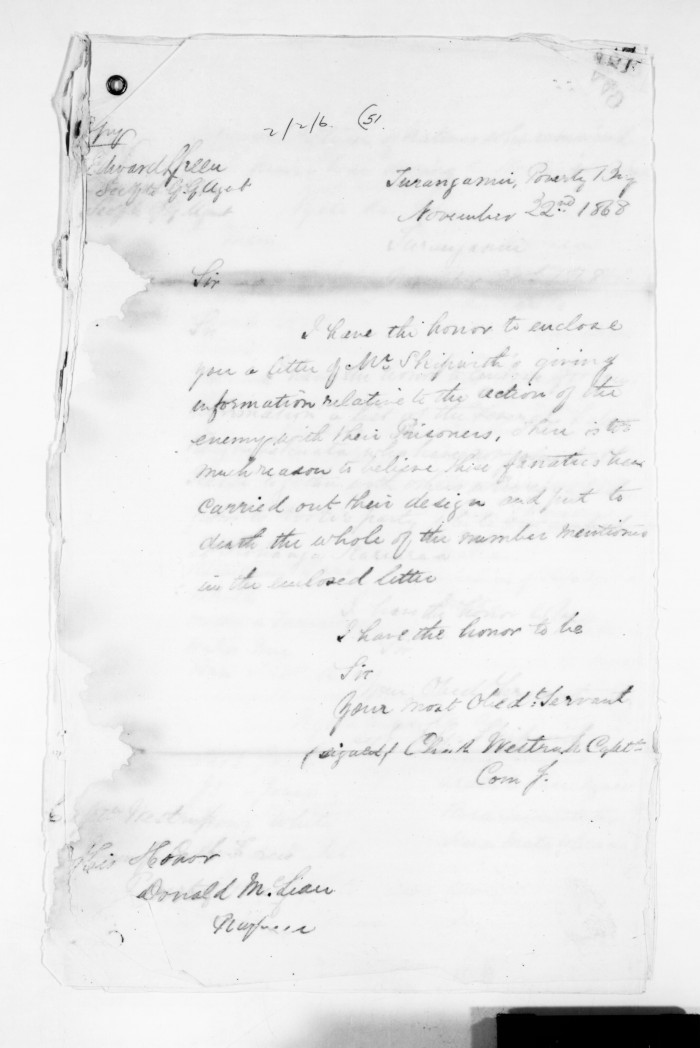 2/2/6 (51.
Copy
Edward Green
Turanganui, Poverty Bay
November 22nd 1868
Sir
I have the honor to enclose
you a letter of Mr Shipworth's giving
information relative to the action of the
enemy with their Prisoners, there is too
much reason to believe these fanatics have
carried out their design and put to
death the whole of the number mentioned
in the enclosed letter
I have the honor to be
Sir
Your most Obedt. Servant
(signed) Chas Westrup Captn
Com g.
His Honor
Donald McLean
Napier